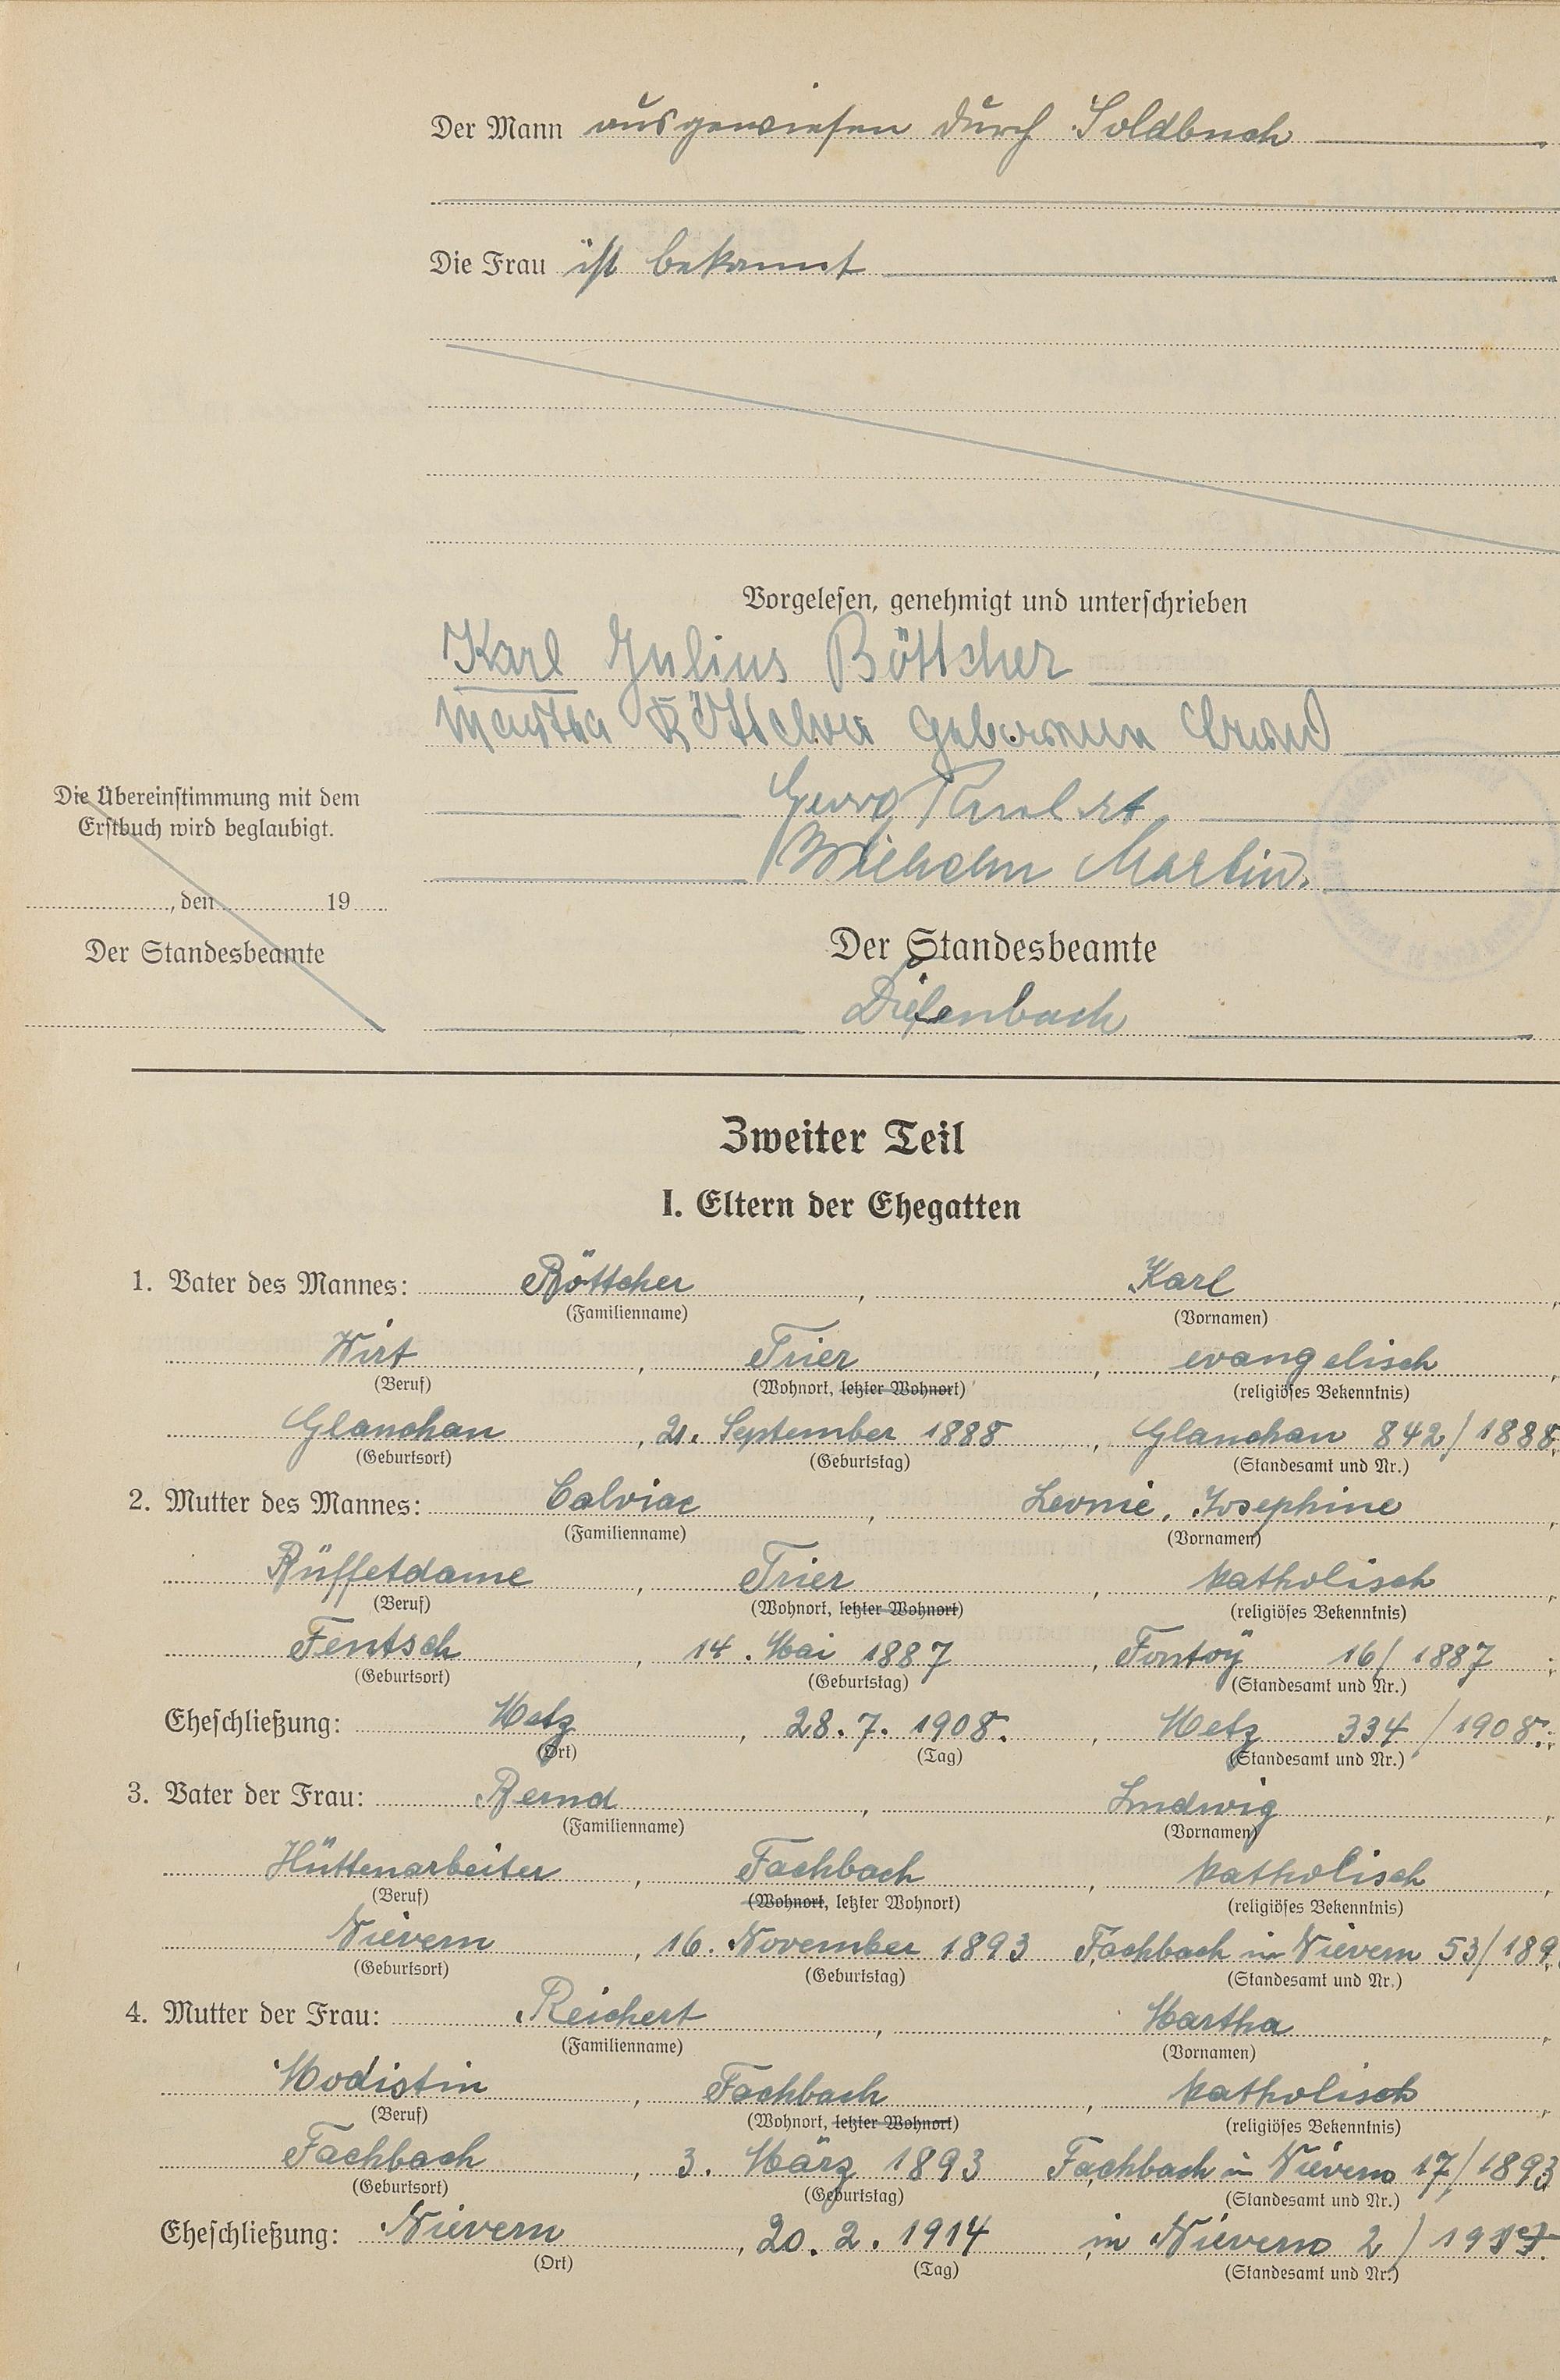 Der Mann ausgewiesen durch Soldbuch
Die Frau ist bekannt
Vorgelesen, genehmigt und unterschrieben
Karl Julius Böttcher
Martha Böttcher geborene Bernd
Georg
Wilhelm Martin.
Die Übereinstimmung mit dem
Erstbuch wird beglaubigt.
, den 19
Der Standesbeamte
Der Standesbeamte
Diefenbach
Zweiter Teil
I. Eltern der Ehegatten
1. Vater des Mannes: Böttcher, Karl,
(Familienname) (Vornamen)
Wirt, Trier, evangelisch,
(Beruf) (Wohnort, letzter Wohnort) (religiöses Bekenntnis)
Glauchau, 21. September 1888, Glauchau 842/1888;
(Geburtsort) (Geburtstag) (Standesamt und Nr.)
2. Mutter des Mannes: Calviac, Leonie, Josephine,
(Familienname) (Vornamen)
Büffetdame, Trier, katholisch,
(Beruf) (Wohnort, letzter Wohnort) (religiöses Bekenntnis)
Fentsch, 14. Mai 1887, Fontoÿ 16/1887;
(Geburtsort) (Geburtstag) (Standesamt und Nr.)
Eheschließung: Metz, 28.7.1908., Metz 334/1908.;
(Ort) (Tag) (Standesamt und Nr.)
3. Vater der Frau: Bernd, Ludwig,
(Familienname) (Vornamen)
Hüttenarbeiter, Fachbach, katholisch,
(Beruf) (Wohnort, letzter Wohnort) (religiöses Bekenntnis)
Nievern, 16. November 1893 Fachbach in Nievern 53/189
(Geburtsort) (Geburtstag) (Standesamt und Nr.)
4. Mutter der Frau: Reichert, Martha,
(Familienname) (Vornamen)
Modistin, Fachbach, katholisch,
(Beruf) (Wohnort, letzter Wohnort) (religiöses Bekenntnis)
Fachbach, 3. März 1893 Fachbach in Nievern 17/1893
(Geburtsort) (Geburtstag) (Standesamt und Nr.)
Eheschließung: Nievern, 20.2.1914, in Nievern 2/
(Ort) (Tag) (Standesamt und Nr.)